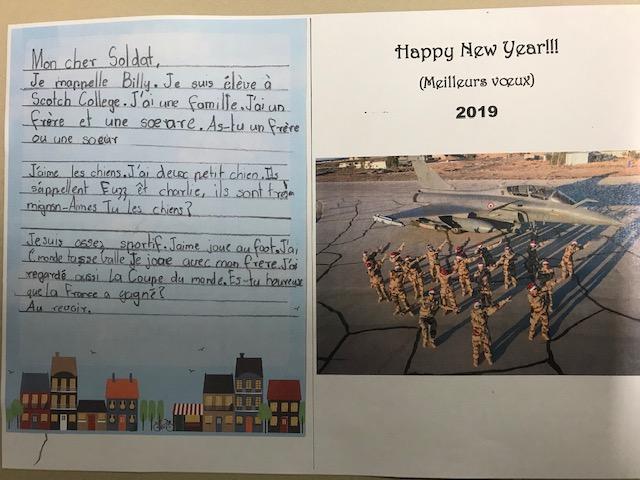 Mon cher Soldat,
Je mappelle Billy. Je suis élève à
Scotch College. J'ai une famille. J'ai un
frère et une sœare. As-tu un frère
ou une sœur
J'aime les chiens. J'ai deux petit chien. Ils
s'appellent Fuzz et charlie, ils sont très
mignon-Aimes Tu les chiens?
Je suis assez sportif. J'aime joue au foot. J'ai
Je joue avec mon frère. J'ai
regardé aussi La Coupe du monde. Es-tu heureux
que la France a gagné?
Au revoir.
Happy New Year!!!
(Meilleurs vœux)
2019